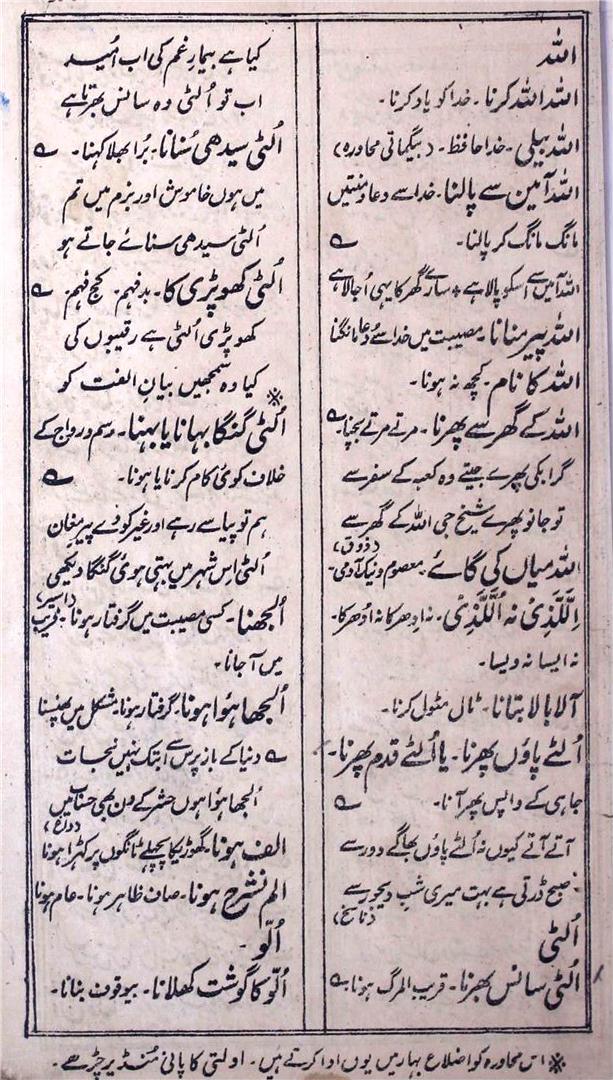 اللہ
اللہ اللہ کرنا۔ خدا کو یاد کرنا۔
اللہ بیلی۔ خدا حافظ۔ (بیگماتی محاورہ)
اللہ آمین سے پالنا۔ خدا سے دعا و منتیں
مانگ مانگ کر پالنا۔ ؎
اللہ آمیں سے اسکو پالا ہے * سارے گھر کا یہی اُجالا ہے
اللہ پیر منانا۔ مصیبت میں خدا سے دُعا مانگنا
اللہ کا نام۔ کچھ نہ ہونا۔
اللہ کے گھر سے پھرنا۔ مرتے مرتے بچنا۔ ؎
گر ابکی پھرے جیتے وہ کعبہ کے سفر سے
تو جانو پھرے شیخ جی اللہ کے گھر سے
(ذوق)
اللہ میاں کی گائے۔ معصوم و نیک آدمی۔
اِلَّذِیْ نہ اُلَّذِیْ۔ نہ اِدھر کا نہ اُودھر کا۔
نہ ایسا نہ ویسا۔
آلا بالا بتانا۔ ٹال مٹول کرنا۔
اُلٹے پاؤں پھرنا۔ یا اُلٹے قدم پھرنا۔
جا ہی کے واپس پھر آنا۔ ؎
آتے آتے کیوں نہ اُلٹے پاؤں بھاگے دور سے
صبح ڈرتی ہے بہت میری شبِ دیجور سے
(ناسخ)
اُلٹی
اُلٹی سانس بھرنا۔ قریب المرگ ہونا۔ ؎
کیا ہے بیمارِ غم کی اب اُمید
اب تو اُلٹی وہ سانس بھرتا ہے
اُلٹی سیدھی سُنانا۔ بُرا بھلا کہنا۔ ؎
میں ہوں خاموش اور بزم میں تم
اُلٹی سیدھی سنائے جاتے ہو
اُلٹی کھوپڑی کا۔ بد فہم۔ کج فہم۔ ؎
کھوپڑی اُلٹی ہے رقیبوں کی
کیا وہ سمجھیں بیانِ الفت کو
※ اُلٹی گنگا بہانا یا بہنا۔ رسم و رواج کے
خلاف کوئی کام کرنا یا ہونا۔ ؎
ہم تو پیاسے رہے اور غیر کو دے پیرِ مغان
اُلٹی اس شہر میں بہتی ہوئی گنگا دیکھی
(اسیر)
اُلجھنا۔ کسی مصیبت میں گرفتار ہونا۔ فریب
میں آ جانا۔
اُلجھا ہوا ہونا۔ گرفتار ہونا۔ مشکل میں پھنسنا
؎ دنیا کے باز پرس سے ابتک نہیں نجات
اُلجھا ہوا ہوں حشر کے دن بھی حساب میں
(داغ)
الف ہونا۔ گھوڑیکا پچھلے ٹانگوں پر کھڑا ہونا
الم نشرح ہونا۔ صاف ظاہر ہونا۔ عام ہونا
اُلّو۔
اُلّو کا گوشت کھلانا۔ بیوقوف بنانا۔
※ اس محاورہ کو اضلاع بہار میں یوں ادا کرتے ہیں۔ اولتی کا پانی منڈیر چڑھے۔